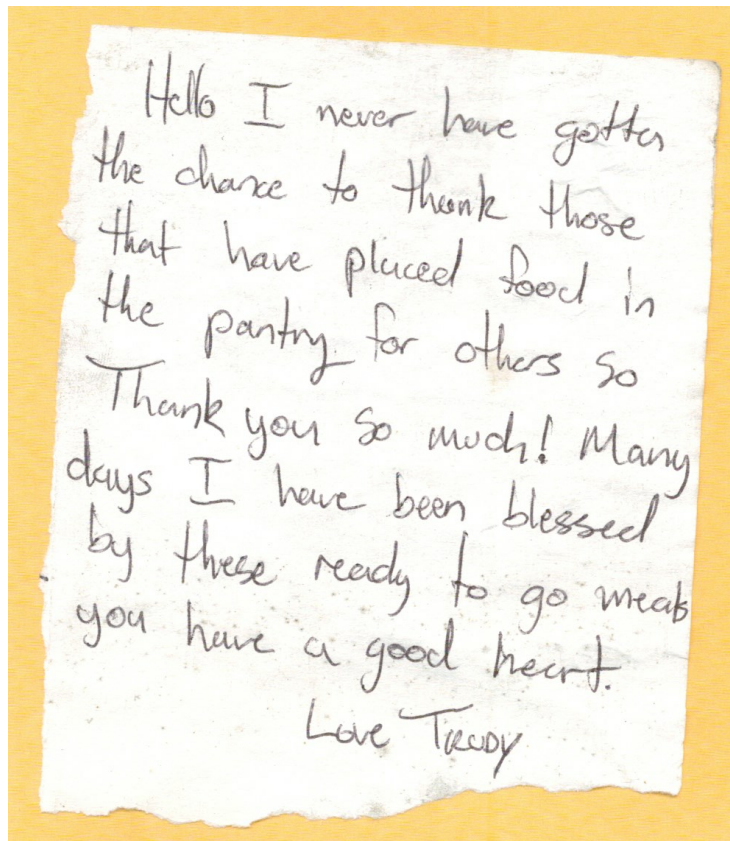 Hello I never have gotten
the chance to thank those
that have placed food in
the pantry for others so
Thank you so much! Many
days I have been blessed
by these ready to go meals
you have a good heart.
Love Trudy